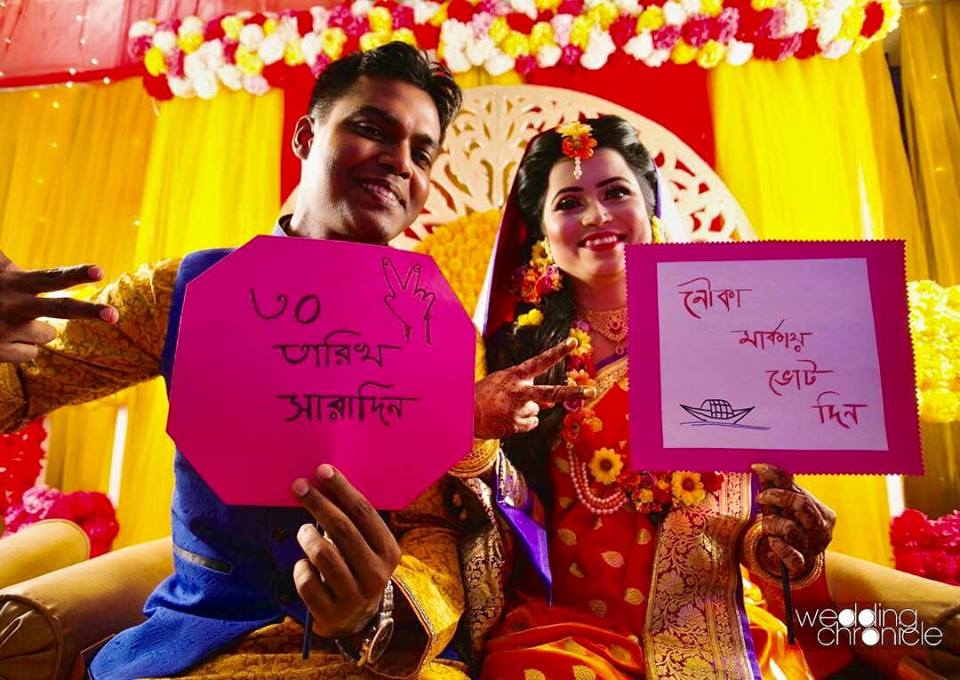 ৩০
তারিখ
সারাদিন
নৌকা
মার্কায়
ভোট
দিন
wedding
chronicle